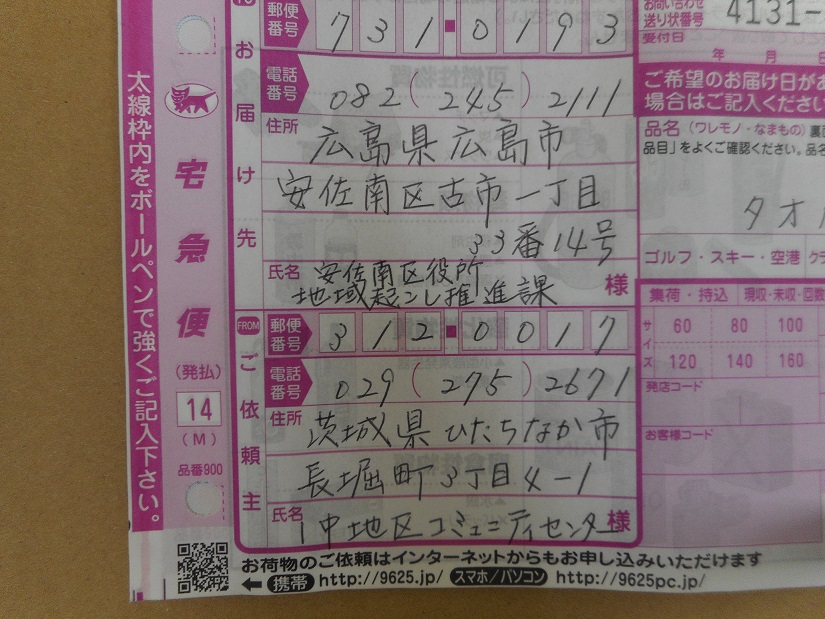 お届け先
郵便番号 731-0193
お問い合わせ
送り状番号 4131-
受付日
年 月
電話番号 082(245)2111
住所 広島県広島市
安佐南区古市一丁目
33番14号
氏名 安佐南区役所
地域起こし推進課 様
ご希望のお届け日が
場合はご記入ください
品名 (ワレモノ・なまもの) 裏面
品目」をよくご確認ください。品名
タオル
ゴルフ・スキー・空港
集荷・持込 現収・未収・回数
サイズ 60 80 100
120 140 160
発店コード
お客様コード
FROM
ご依頼主
郵便番号 312-0017
電話番号 029(275)2671
住所 茨城県ひたちなか市
長堀町3丁目4-1
氏名 一中地区コミュニティセンター 様
太線枠内をボールペンで強くご記入下さい。
宅急便
(発払)
14
(M)
品番900
お荷物のご依頼はインターネットからもお申し込みいただけます
携帯 http://9625.jp/ スマホ/パソコン http://9625pc.jp/